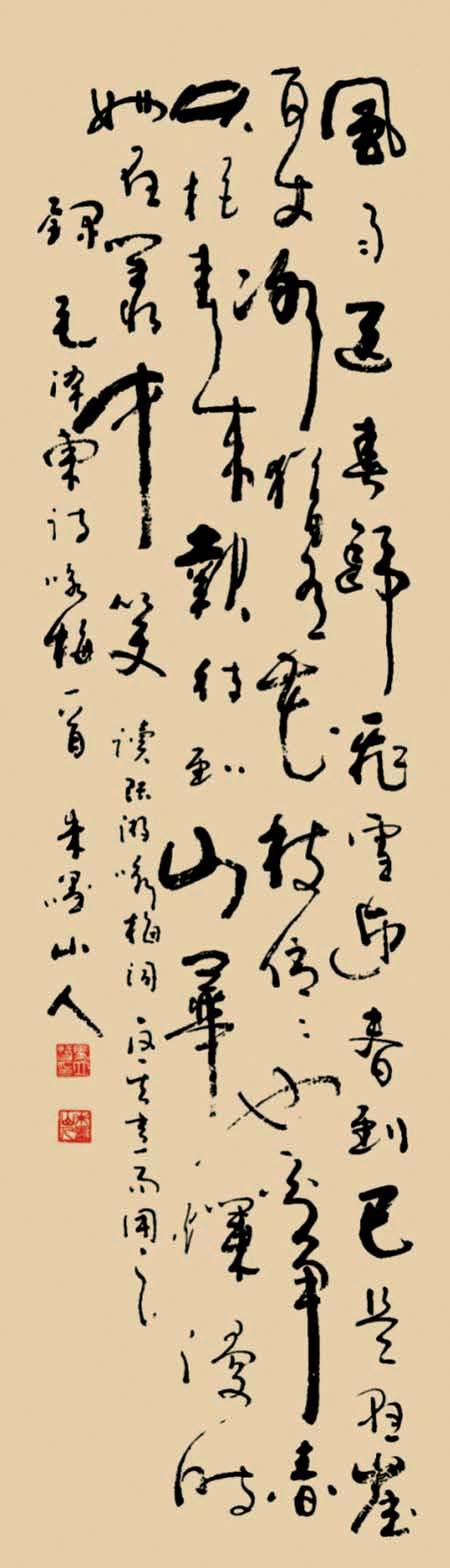 風雨送春歸飛雪迎春到已是悬崖
百丈冰猶有花枝俏〻也不爭春
只把春來報待到山華爛漫時
她在叢中笑 讀陸游咏梅詞反其意而用之
錄毛泽東诗咏梅一首 朱山人